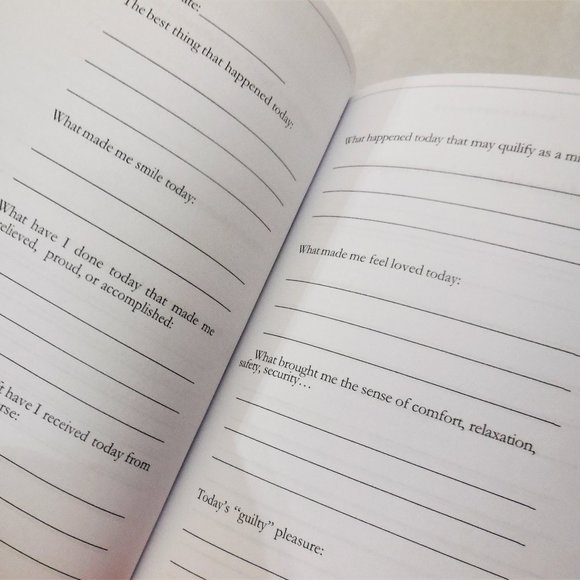 The best thing that happened today:
What made me smile today:
What have I done today that made me
relieved, proud, or accomplished:
have I received today from
What happened today that may quilify as a
What made me feel loved today:
What brought me the sense of comfort, relaxation,
safety, security...
Today's "guilty" pleasure: